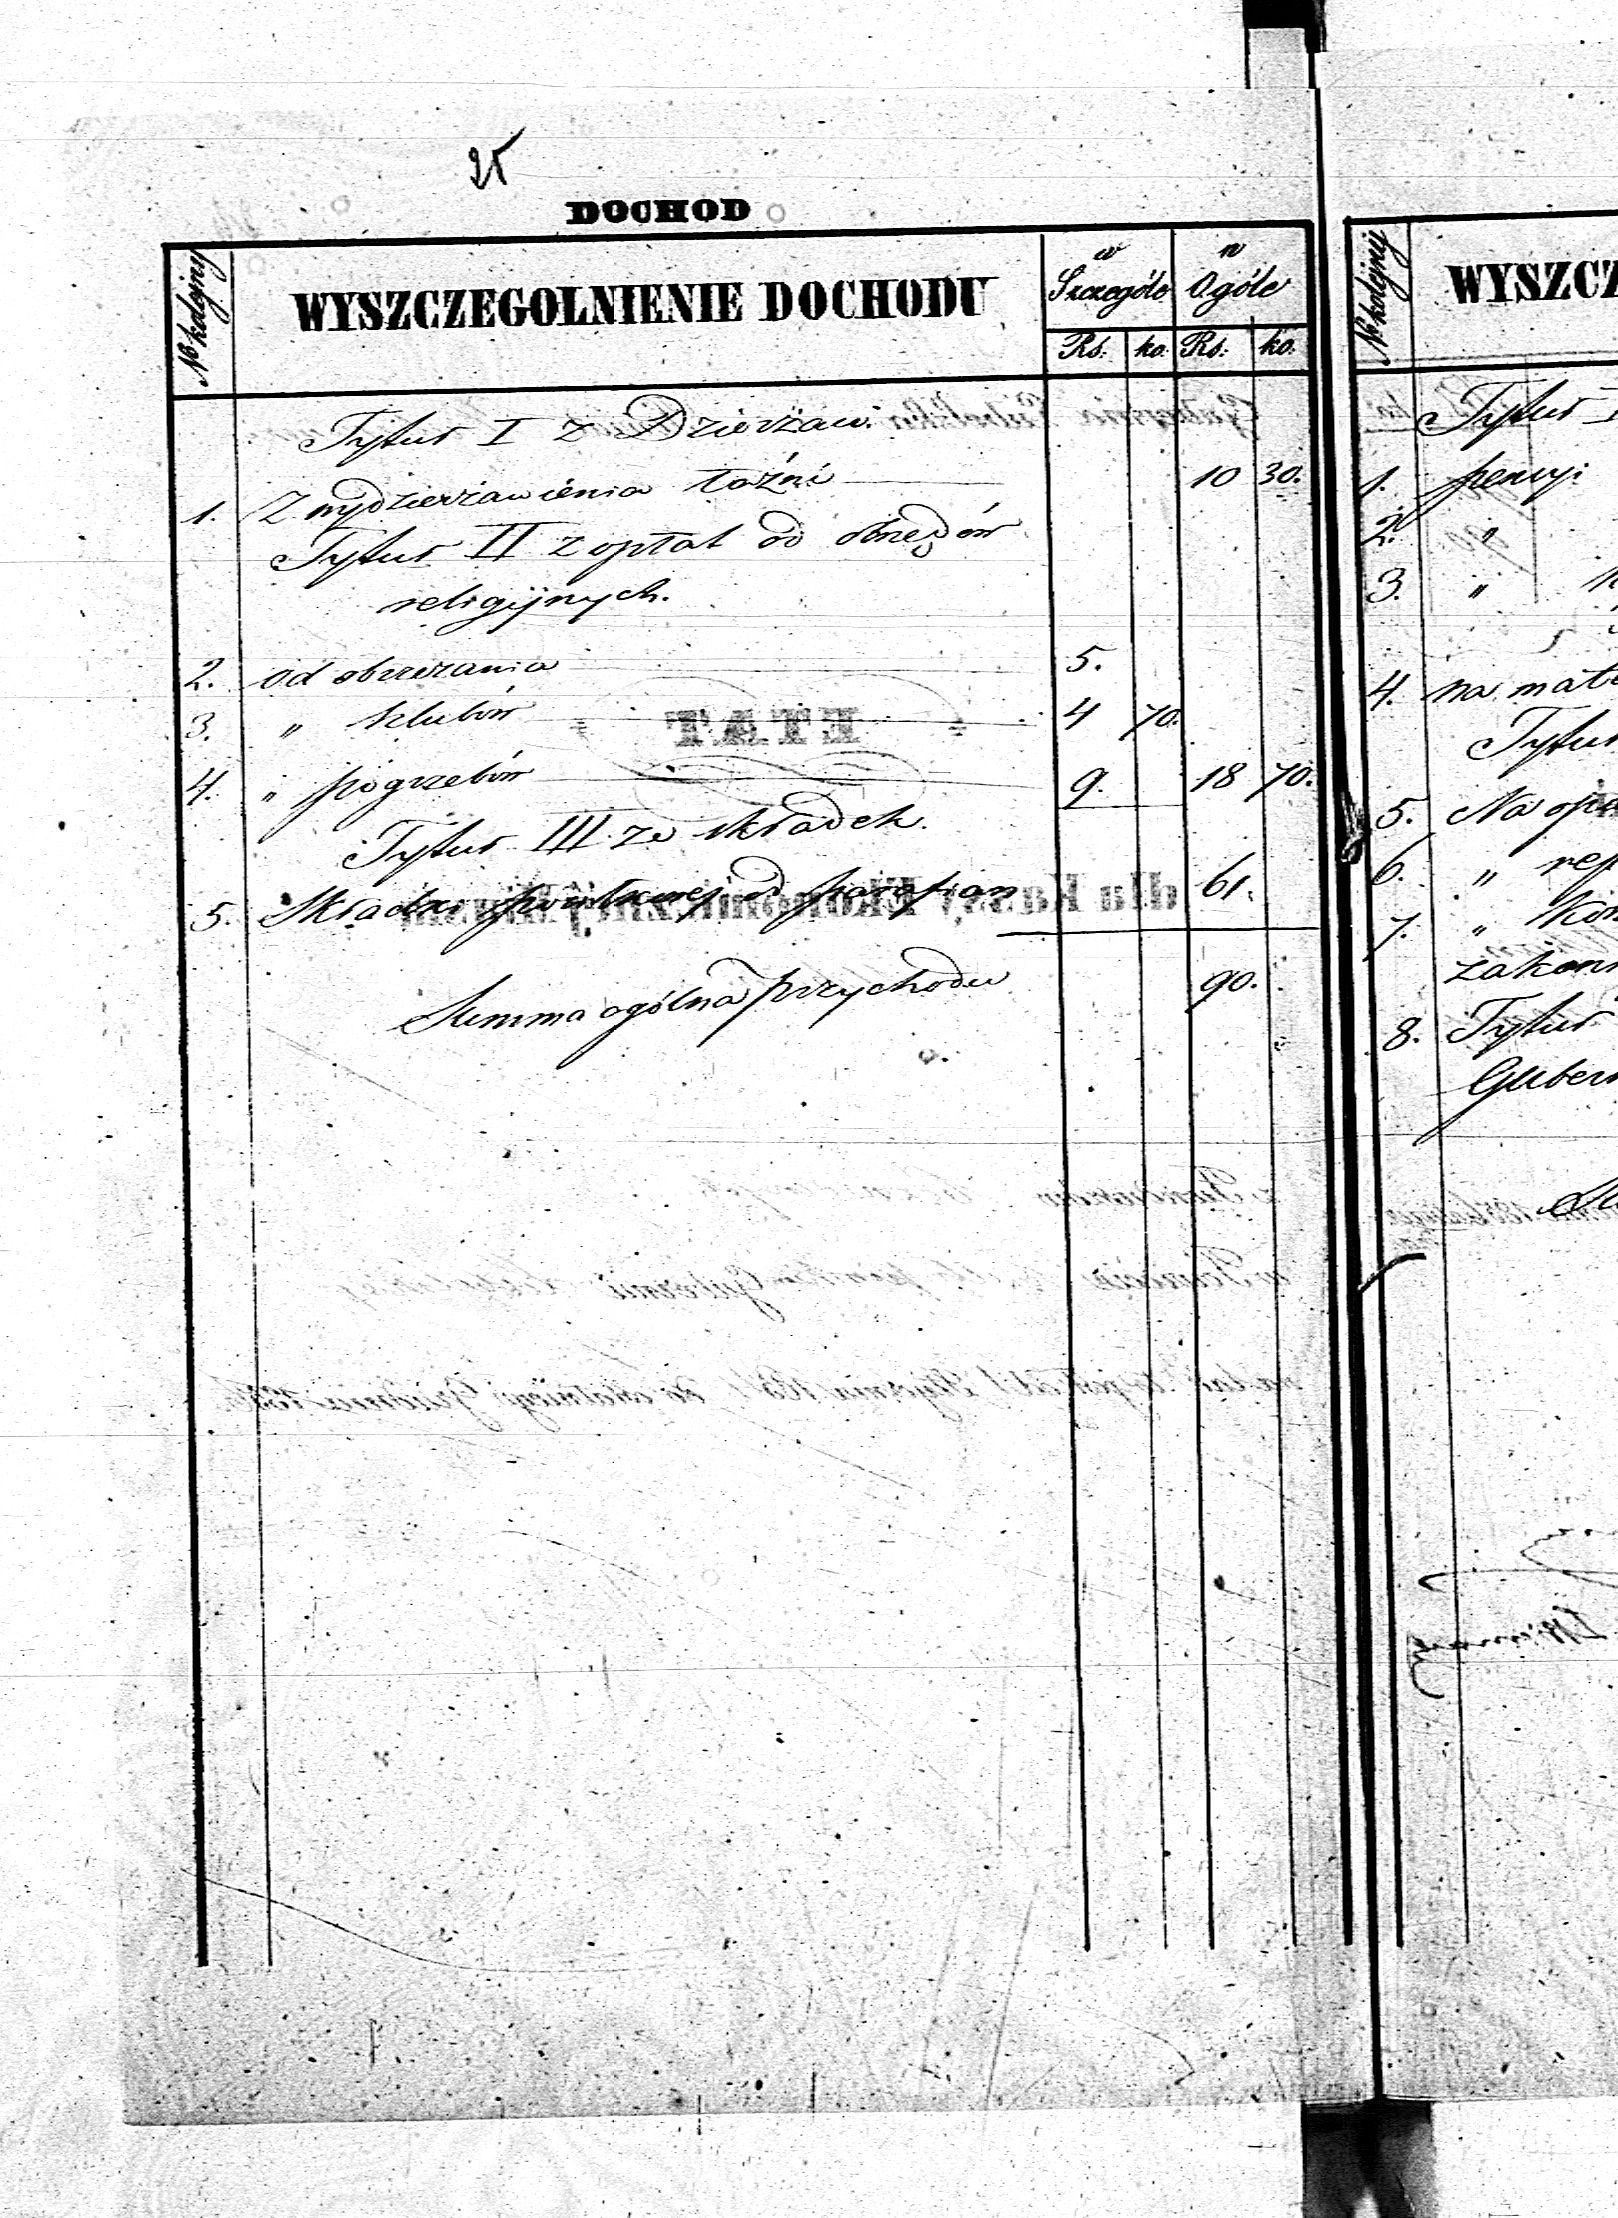 25
DOCHOD
№ kolejny
WYSZCZEGOLNIENIE DOCHODU
w Szczególe
w Ogóle
Rs: ko. Rs: ko.
Tytuł I z Dzierżaw.
1. Z wydzierżawienia łaźni 10 30.
Tytuł II z opłat od obrzędów
religijnych.
2. od obrzezania 5.
3. " szlubów 4 70.
4. " pogrzebów 9. 18 70.
Tytuł III ze składek.
5. Składki od parafian 61.
Summa ogólna przychodu 90.
№ kolejny
WYSZCZ
Tytuł I
1. pensyi
2. "
3. "
4. na mate
Tytuł
5. Na opa
6. " rep
7. "
8. Tytuł
Gubern